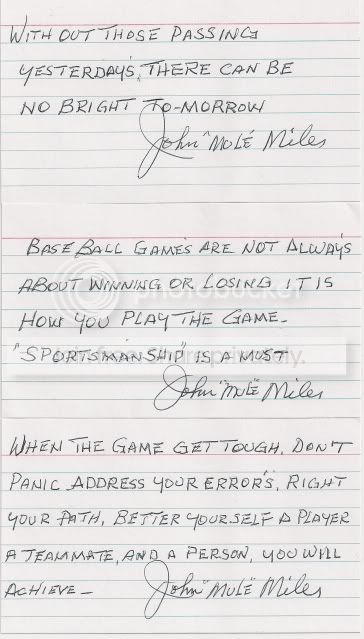 WITH OUT THOSE PASSING
YESTERDAY'S, THERE CAN BE
NO BRIGHT TO-MORROW
John "MULE" Miles
BASEBALL GAMES ARE NOT ALWAYS
ABOUT WINNING OR LOSING IT IS
HOW YOU PLAY THE GAME-
"SPORTSMANSHIP" IS A MUST
John "MULE" Miles
WHEN THE GAME GET TOUGH, DON'T
PANIC ADDRESS YOUR ERROR'S, RIGHT
YOUR PATH, BETTER YOURSELF A PLAYER
A TEAMMATE, AND A PERSON, YOU WILL
ACHIEVE- John "MULE" Miles